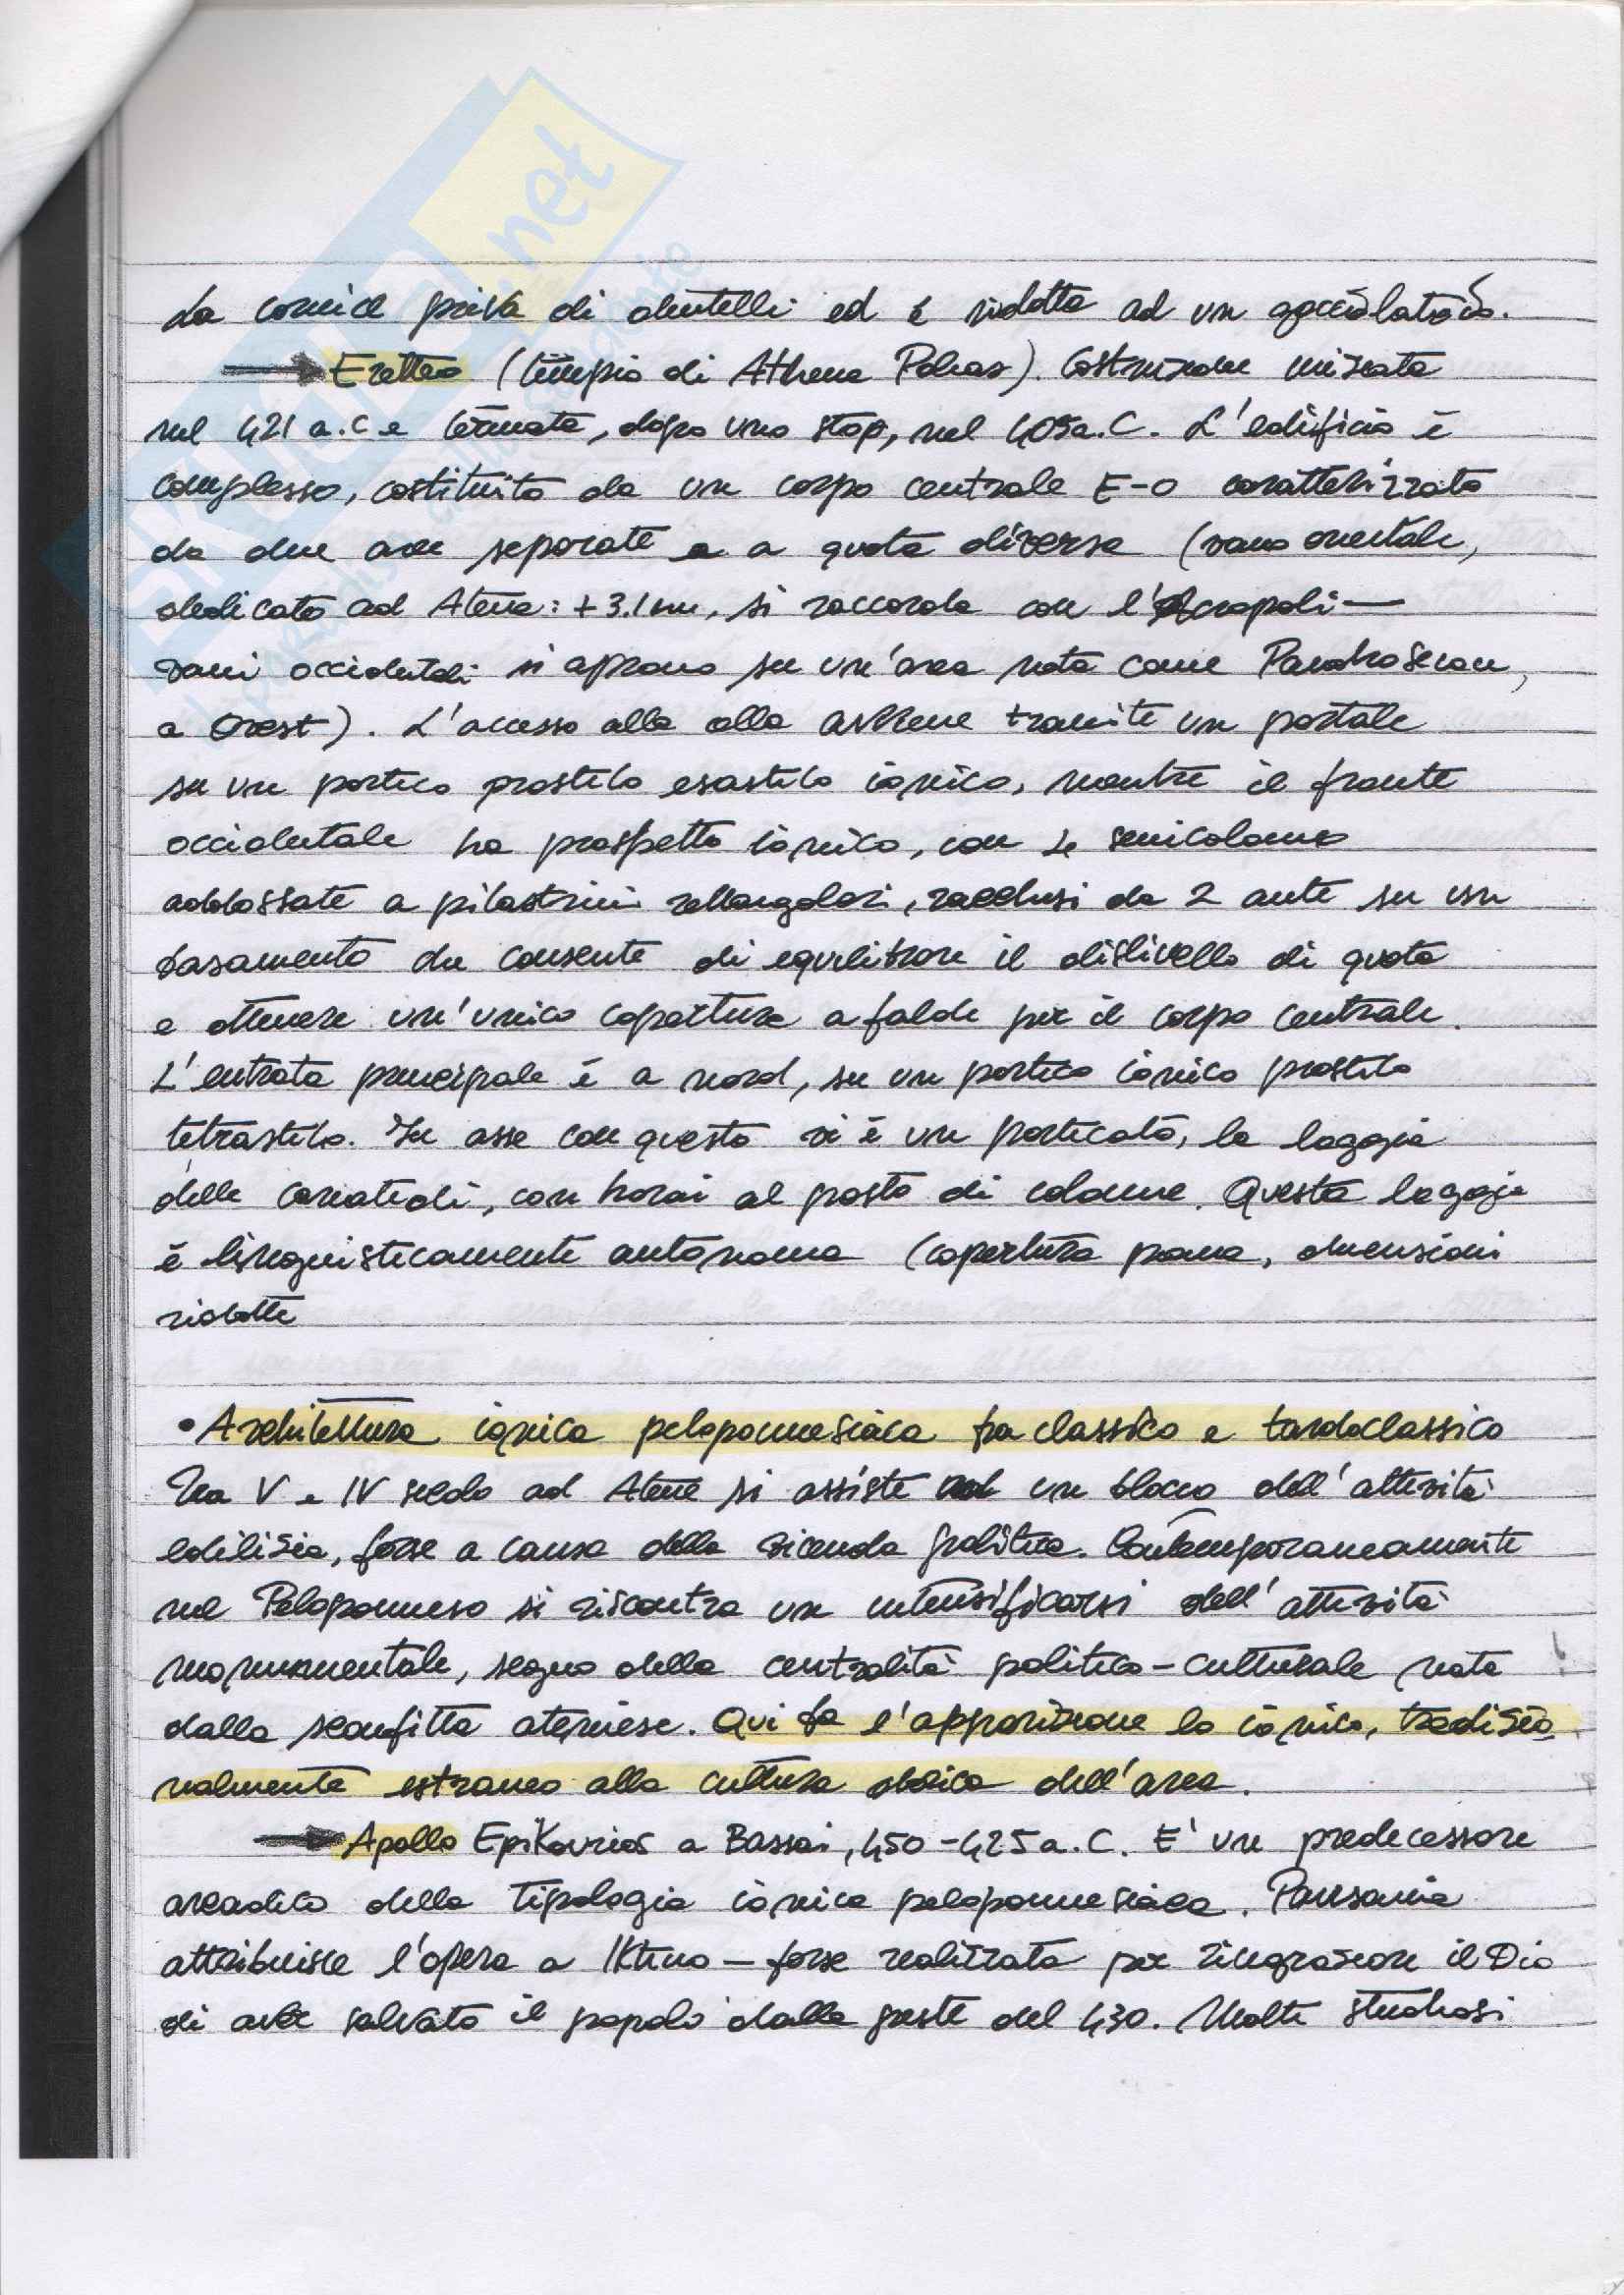 SKUOLA.net
La cornice priva di dentelli ed è ridotta ad un gocciolatoio.
→ Eretteo (tempio di Athena Polias). Costruzione iniziata
nel 421 a.C e terminata, dopo uno stop, nel 405 a.C. L'edificio è
complesso, costituito da un corpo centrale E-O caratterizzato
da due aree separate e a quota diversa (vano orientale,
dedicato ad Atena: +3.1m, si raccorda con l'Acropoli —
vani occidentali si aprono su un'area nota come Pandroseion,
a Ovest). L'accesso alla cella avviene tramite un portale
su un portico prostilo esastilo ionico, mentre il fronte
occidentale ha prospetto ionico, con 4 semicolonne
addossate a pilastrini rettangolari, racchiusi da 2 ante su un
basamento che consente di equilibrare il dislivello di quota
e ottenere un'unica copertura a falde per il corpo centrale.
L'entrata principale è a nord, su un portico ionico prostilo
tetrastilo. In asse con questo vi è un porticato, la loggia
delle cariatidi, con korai al posto di colonne. Questa loggia
è linguisticamente autonoma (copertura piana, dimensioni
ridotte
• Architettura ionica peloponnesiaca fra classico e tardoclassico
Tra V e IV secolo ad Atene si assiste ad un blocco dell'attività
edilizia, forse a causa della vicenda politica. Contemporaneamente
nel Peloponneso si riscontra un intensificarsi dell'attività
monumentale, segno della centralità politico-culturale nata
dalla sconfitta ateniese. Qui fa l'apparizione lo ionico, tradizio
nalmente estraneo alla cultura dorica dell'area.
→ Apollo Epikourios a Bassai, 450-425 a.C. E' un predecessore
arcadico della tipologia ionica peloponnesiaca. Pausania
attribuisce l'opera a Iktino — forse realizzata per ringraziare il Dio
di aver salvato il popolo dalla peste del 430. Molti studiosi